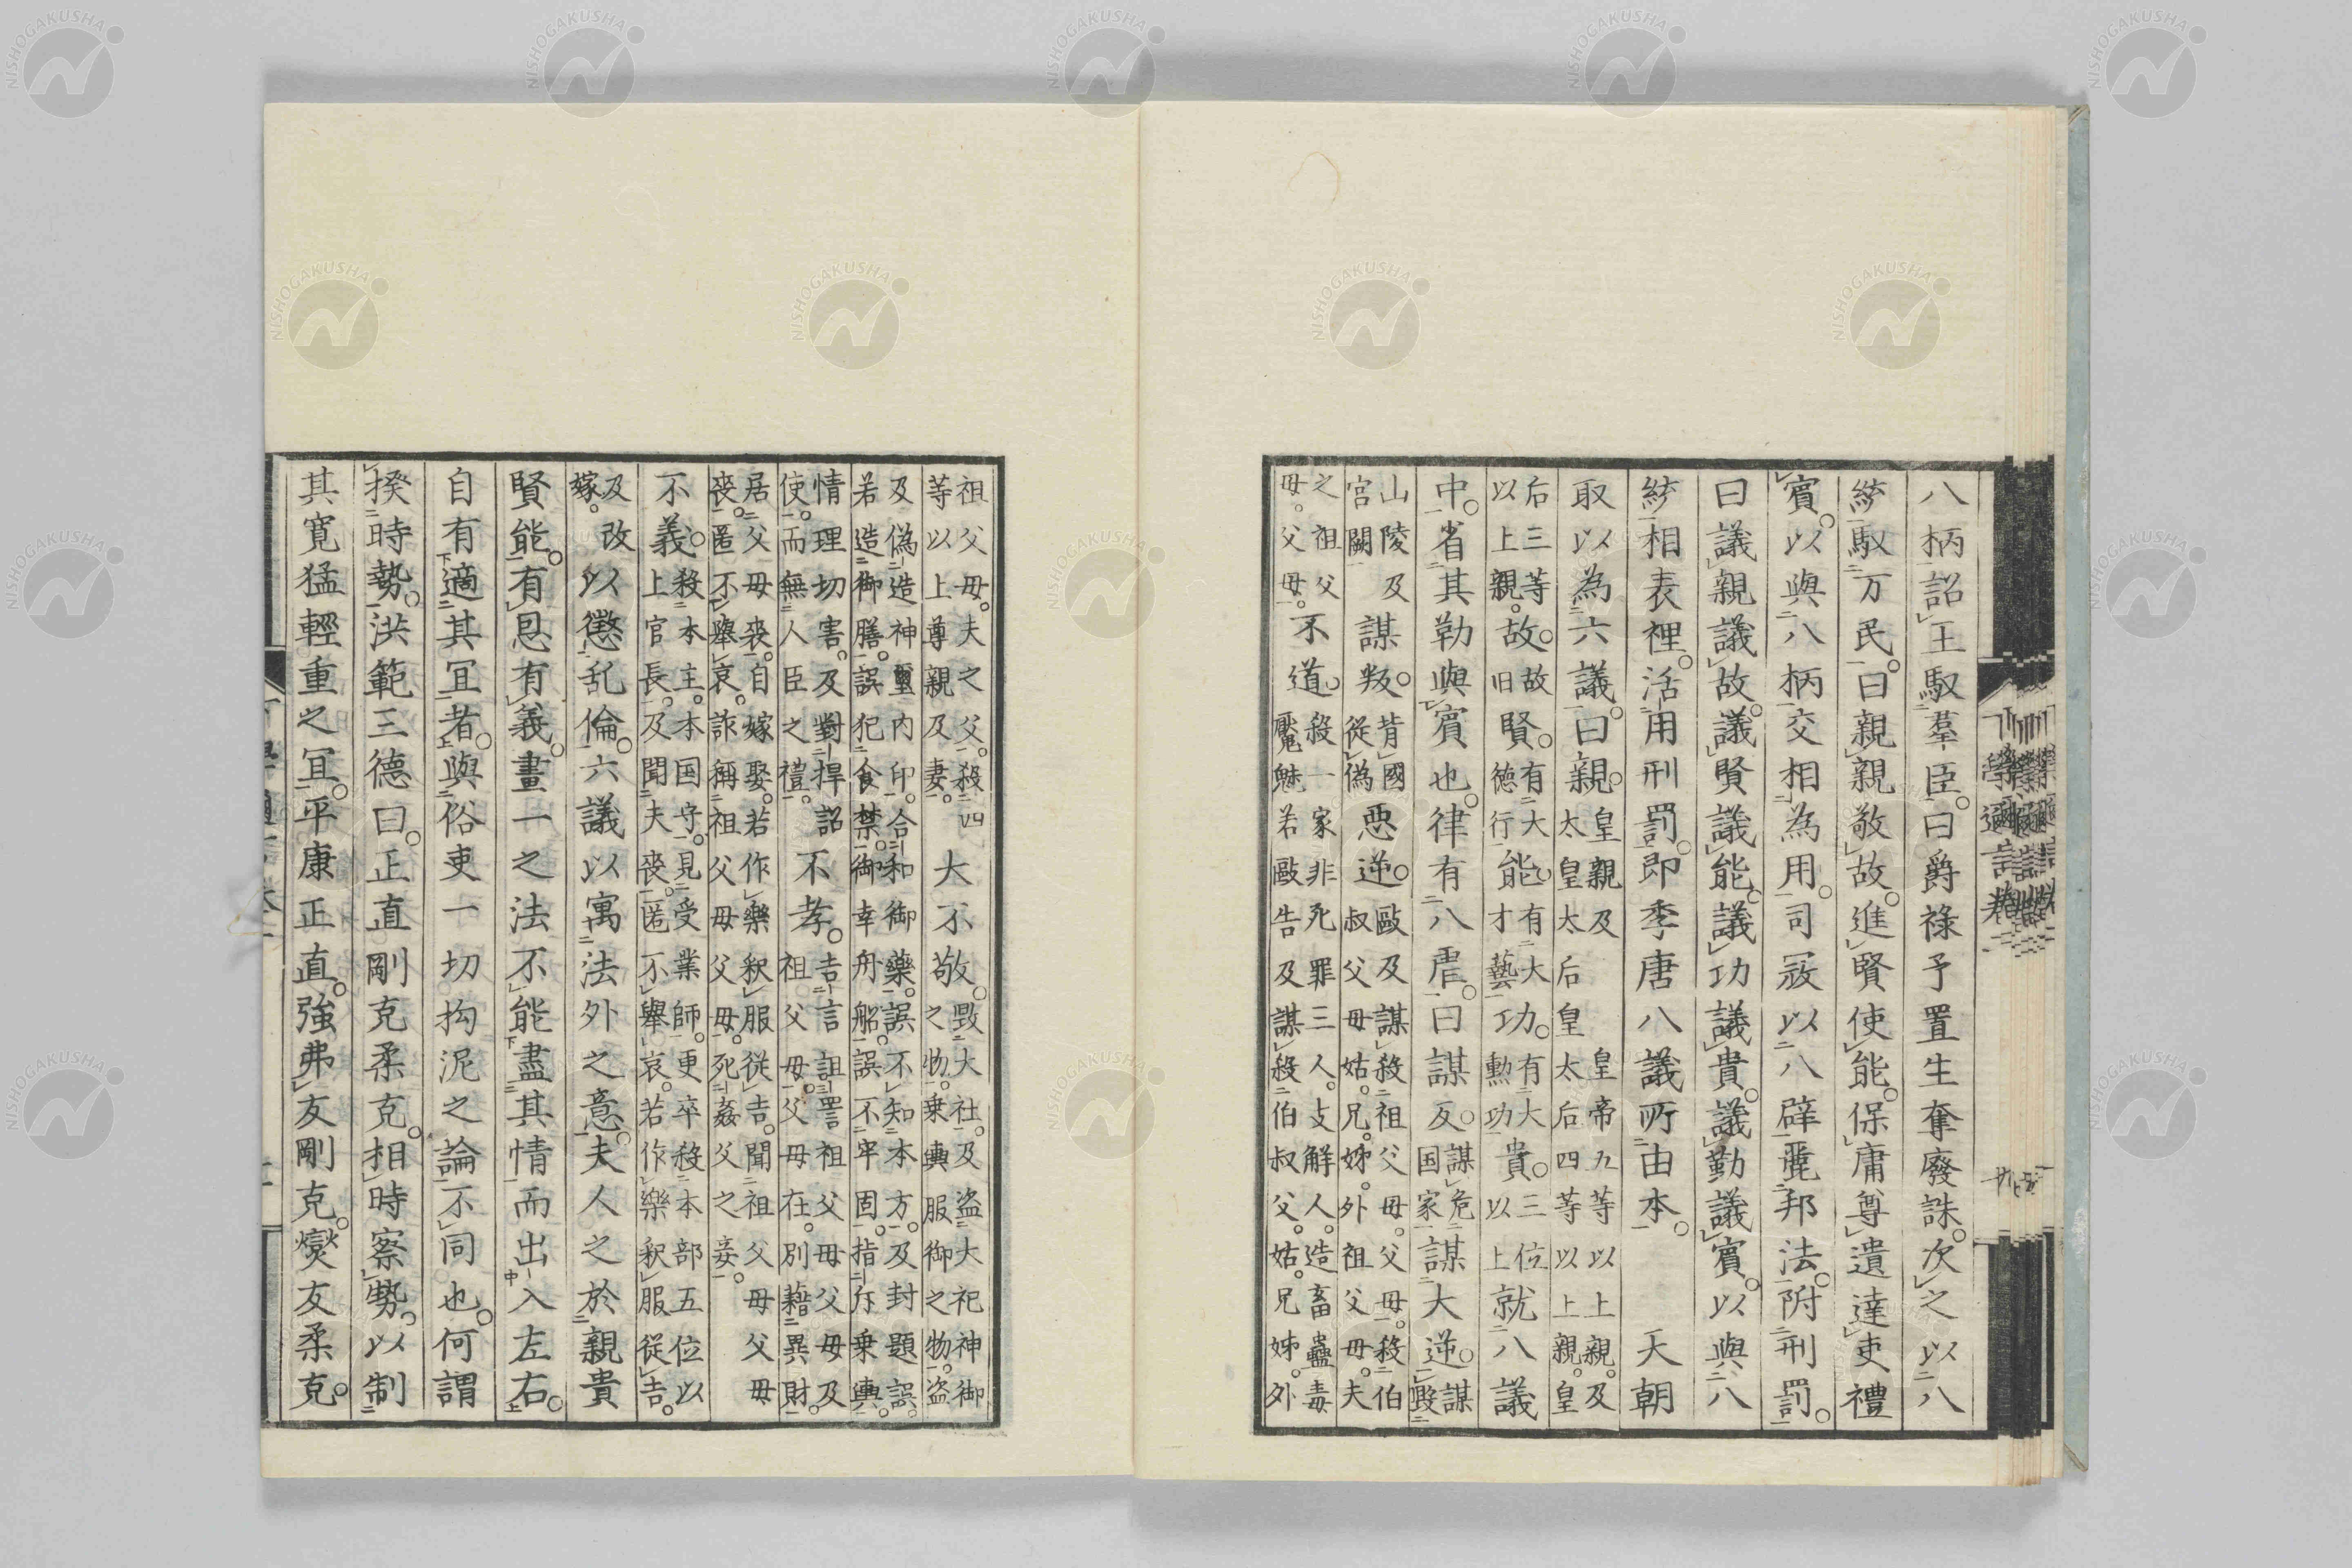 八柄詔王馭羣臣。曰爵祿予置生奪廢誅。次之以八
綂馭万民。曰親親敬故。進賢使能。保庸尊遺達吏禮
賓。以與八柄交相為用。司冦以八辟麗邦法。附刑罰。
曰議親議故。議賢議能。議功議貴。議勤議賓。以與八
綂相表裡。活用刑罰。即李唐八議所由本。　天朝
取以為六議。曰親。皇親及　皇帝九等以上親。及太皇太后皇太后四等以上親。皇
后三等以上親。故。故旧賢。有大德行能。有大才藝功。有大勲功貴。三位以上就八議
中。省其勒與賓也。律有八虐。曰謀反。謀危国家謀大逆。謀毀
山陵及宮闕謀叛。背國從偽惡逆。毆及謀殺祖父母。父母。殺伯叔父母姑。兄。姊。外祖父母。夫
之祖父母。父母。不道。殺一家非死罪三人。支解人。造畜蠱毒魘魅若毆告及謀殺伯叔父。姑。兄姊。外
祖父母。夫之父。殺四等以上尊親及妻。大不敬。毀大社。及盗大祀神御之物。乗輿服御之物。盗
及偽造神璽内印。合和御藥。誤不知本方。及封題誤。若造御膳。誤犯食禁。御幸舟船。誤不牢固。指斥乗輿。
情理切害。及對捍詔使。而無人臣之禮。不孝。告言詛詈祖父母父母及祖父母。父母在。別藉異財。
居父母喪。自嫁娶。若作樂釈服従吉。聞祖父母父母喪。匿不舉哀。詐稱祖父母父母。死姦父之妾。
不義。殺本主。本国守。見受業師。更卒殺本部五位以上官長。及聞夫喪。匿不舉哀。若作樂釈服従吉。
及改嫁。以懲乱倫。六議以寓法外之意。夫人之於親貴
賢能。有恩有義。畫一之法不能盡其情而出入左右。
自有適其宜者。與俗吏一切拘泥之論不同也。何謂
揆時勢。洪範三德曰。正直剛克柔克。相時察勢。以制
其寛猛輕重之宜。平康正直。強弗友剛克。爕友柔克。